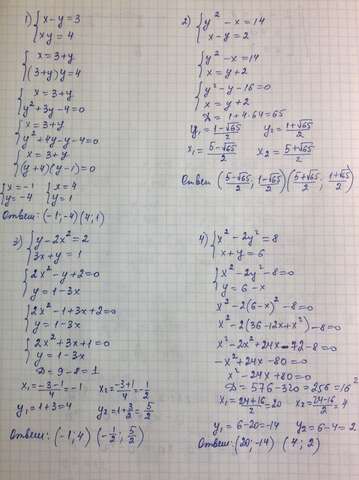 1) { x-y=3
xy=4
{ x=3+y
(3+y)y=4
{ x=3+y
y²+3y-4=0
{ x=3+y
y²+4y-y-4=0
{ x=3+y
(y+4)(y-1)=0
{ x=-1 { x=4
y=-4 y=1
Ответ: (-1;-4)(4;1)
2) { y²-x=14
x-y=2
{ y²-x=14
x=y+2
{ y²-y-16=0
x=y+2
D=1+4·64=65
y₁=(1-√65)/2 y₂=(1+√65)/2
x₁=(5-√65)/2 x₂=(5+√65)/2
Ответ ((5-√65)/2; (1-√65)/2)((5+√65)/2; (1+√65)/2)
3) { y-2x²=2
3x+y=1
{ 2x²-y+2=0
y=1-3x
{ 2x²-1+3x+2=0
y=1-3x
{ 2x²+3x+1=0
y=1-3x
D=9-8=1
x₁=(-3-1)/4=-1 x₂=(-3+1)/4=-1/2
y₁=1+3=4 y₂=1+3/2=5/2
Ответ: (-1;4) (-1/2; 5/2)
4) { x²-2y²=8
x+y=6
{ x²-2y²-8=0
y=6-x
x²-2(6-x)²-8=0
x²-2(36-12x+x²)-8=0
x²-2x²+24x-72-8=0
-x²+24x-80=0
x²-24x+80=0
D=576-320=256=16²
x₁=(24+16)/2=20 x₂=(24-16)/2=4
y₁=6-20=-14 y₂=6-4=2
Ответ: (20;-14) (4;2)